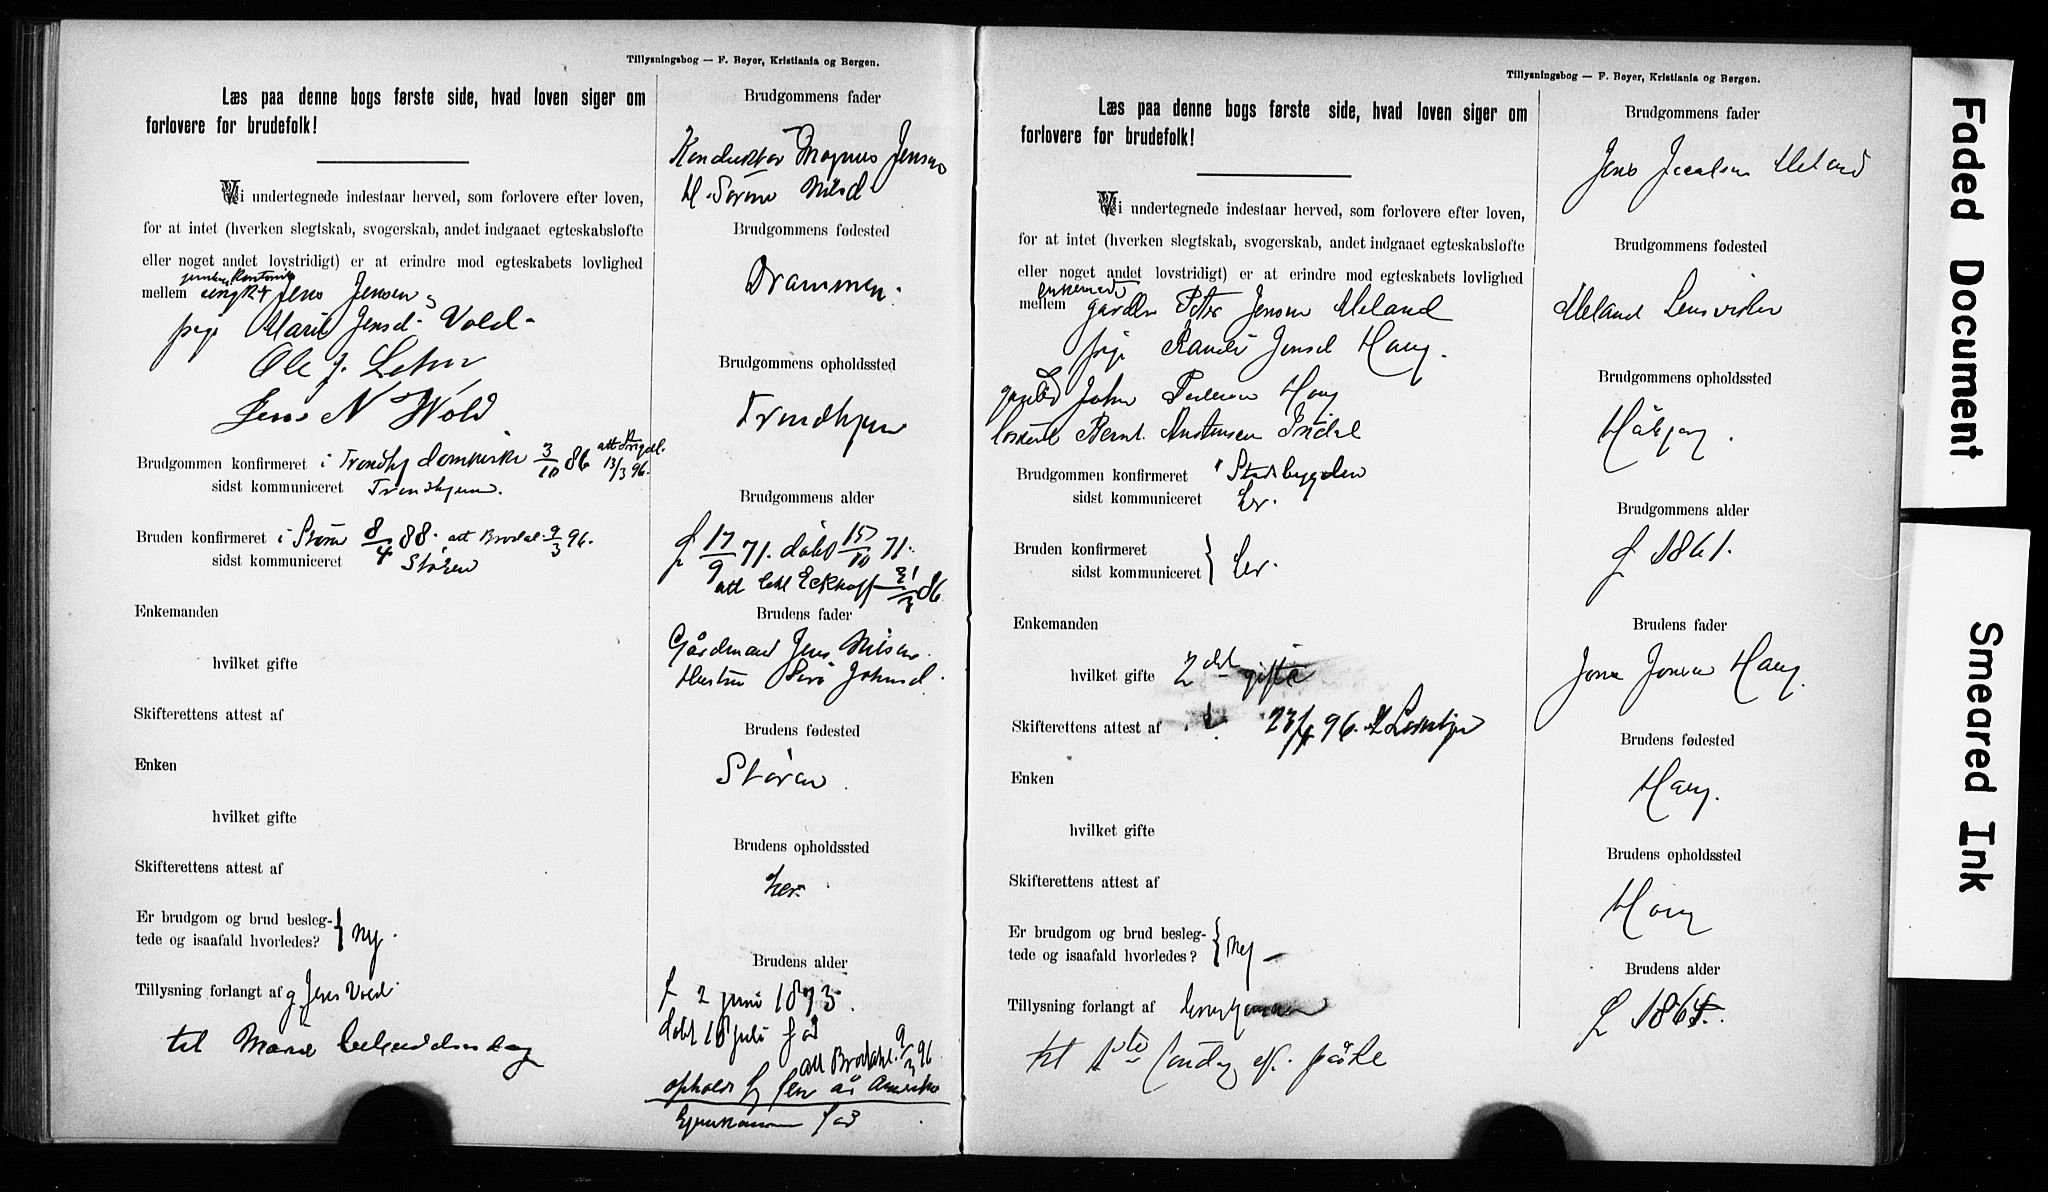 Tillysningsbog — F. Beyer, Kristiania og Bergen.
Læs paa denne bogs første side, hvad loven siger om
forlovere for brudefolk!
Vi undertegnede indestaar herved, som forlovere efter loven,
for at intet (hverken slegtskab, svogerskab, andet indgaaet egteskabsløfte
eller noget andet lovstridigt) er at erindre mod egteskabets lovlighed
mellem ungk. Jens Jensen
pige Marit Jensd. Vold
Ole J.
Jens N Wold
Brudgommen konfirmeret i Trondhj domkirke 3/10 86 att 13/3 96.
sidst kommuniceret Trondhjem.
Bruden konfirmeret i Støren 8/4 88. att 9/3 96.
sidst kommuniceret Støren
Enkemanden
hvilket gifte
Skifterettens attest af
Enken
hvilket gifte
Skifterettens attest af
Er brudgom og brud besleg-
tede og isaafald hvorledes? } nej.
Tillysning forlangt af g Jens Vold
til Marie bebudelsesdag
Brudgommens fader
Konduktør Magnus Jensen
H. Sørine Nilsd
Brudgommens fødested
Drammen.
Brudgommens opholdssted
Trondhjem
Brudgommens alder
f 17/9 71. døbt 15/10 71.
att Eckhoff 21/3 86
Brudens fader
Gårdmand Jens Nilsen.
Hustru Siri Johnsd.
Brudens fødested
Støren.
Brudens opholdssted
her.
Brudens alder
f 2 juni 1873.
døbt juli
att 9/3 96
ophold år Amerika
Tillysningsbog — F. Beyer, Kristiania og Bergen.
Læs paa denne bogs første side, hvad loven siger om
forlovere for brudefolk!
Vi undertegnede indestaar herved, som forlovere efter loven,
for at intet (hverken slegtskab, svogerskab, andet indgaaet egteskabsløfte
eller noget andet lovstridigt) er at erindre mod egteskabets lovlighed
enkemand
mellem Peter Jensen Meland
pige Randi Jonsd Haug.
John Pedersen Haug
Bernt
Brudgommen konfirmeret i Stadsbygden
sidst kommuniceret her.
Bruden konfirmeret
sidst kommuniceret } her.
Enkemanden
hvilket gifte 2det gifte
Skifterettens attest af 23/4 96.
Enken
hvilket gifte
Skifterettens attest af
Er brudgom og brud besleg-
tede og isaafald hvorledes? } Nej
Tillysning forlangt af brudgommen
til 1ste søndag eft. påske
Brudgommens fader
Jens Meland
Brudgommens fødested
Meland Lensviken
Brudgommens opholdssted
Brudgommens alder
f 1861.
Brudens fader
Jon Jonsen Haug.
Brudens fødested
Haug.
Brudens opholdssted
Haug
Brudens alder
f. 1864.
Faded Document
Smeared Ink